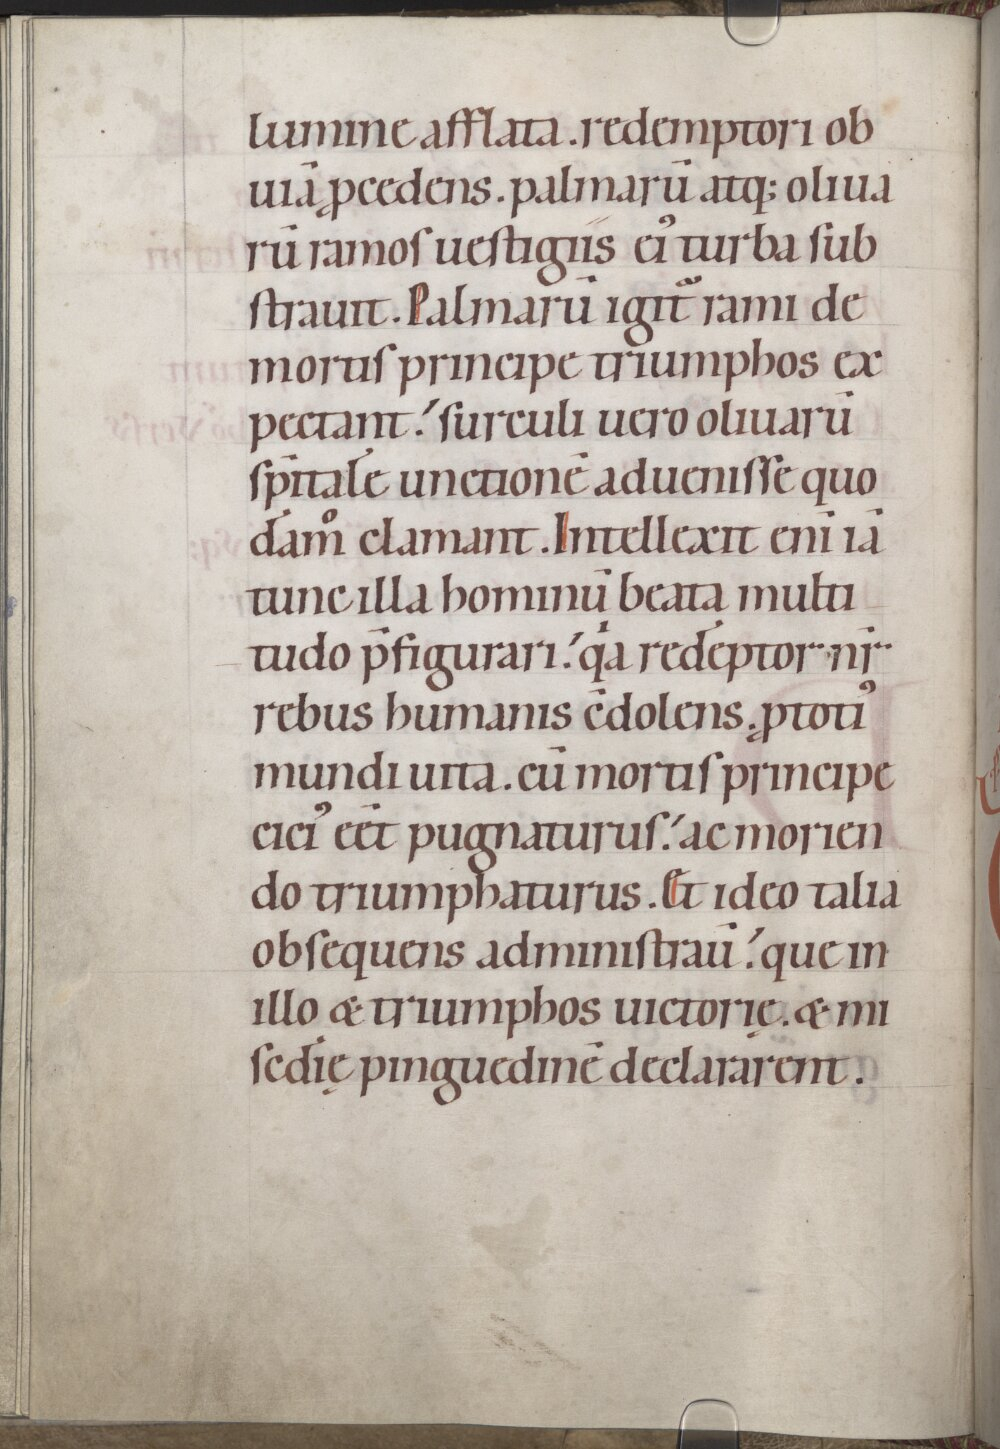 lumine afflata. redemptori ob
uiā ꝓcedens. palmarū atq; oliua
rū ramos uestigiis ei᾽ turba sub
strauit. Palmarū igit᷑ rami de
mortis principe triumphos ex
pectant: surculi uero oliuarū
sp̄itale unctionē aduenisse quo
dāmͦ clamant. Intellexit enī iā
tunc illa hominū beata multi
tudo p̄figurari: qͥa redēptor nr̄
rebus humanis c̄dolens. ꝓ toti᾽
mundi uita. cū mortis principe
eiei᾽ eēt pugnaturus: ac morien
do triumphaturus. Et ideo talia
obsequens administraū: que in
illo & triumphos uictorię. & mi
sc̄dię pinguedinē declararent.